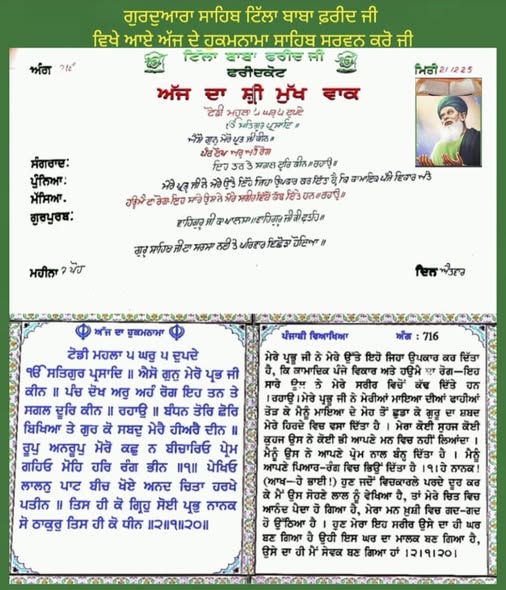 ਗੁਰਦੁਆਰਾ ਸਾਹਿਬ ਟਿੱਲਾ ਬਾਬਾ ਫ਼ਰੀਦ ਜੀ
ਵਿਖੇ ਆਏ ਅੱਜ ਦੇ ਹੁਕਮਨਾਮਾ ਸਾਹਿਬ ਸਰਵਨ ਕਰੋ ਜੀ
ਟਿੱਲਾ ਬਾਬਾ ਫਰੀਦ ਜੀ
ਅੰਗ 716 ਫਰੀਦਕੋਟ ਮਿਤੀ 21 12 25
ਅੱਜ ਦਾ ਸ਼੍ਰੀ ਮੁੱਖ ਵਾਕ
ਟੋਡੀ ਮਹਲਾ ੫ ਘਰੁ ੫ ਦੁਪਦੇ
ੴ ਸਤਿਗੁਰ ਪ੍ਰਸਾਦਿ ॥
ਐਸੋ ਗੁਨੁ ਮੇਰੋ ਪ੍ਰਭ ਜੀ ਕੀਨ ॥
ਪੰਚ ਦੋਖ ਅਰੁ ਅਹੰ ਰੋਗ
ਸੰਗਰਾਦ: ਇਹ ਤਨ ਤੇ ਸਗਲ ਦੂਰਿ ਕੀਨ ॥ ਰਹਾਉ ॥
ਪੁੰਨਿਆ: ਮੇਰੇ ਪ੍ਰਭੂ ਜੀ ਨੇ ਮੇਰੇ ਉੱਤੇ ਇਹੋ ਜਿਹਾ ਉਪਕਾਰ ਕਰ ਦਿੱਤਾ ਹੈ, ਕਿ ਕਾਮਾਦਿਕ ਪੰਜੇ ਵਿਕਾਰ ਅਤੇ
ਮੱਸਿਆ: ਹਉਮੈ ਦਾ ਰੋਗ ਇਹ ਸਾਰੇ ਉਸ ਨੇ ਮੇਰੇ ਸਰੀਰ ਵਿੱਚੋਂ ਕੱਢ ਦਿੱਤੇ ਹਨ ॥ ਰਹਾਉ ॥
ਗੁਰਪੁਰਬ: ਵਾਹਿਗੁਰੂ ਜੀ ਕਾ ਖਾਲਸਾ ॥ ਵਾਹਿਗੁਰੂ ਜੀ ਕੀ ਫਤਹਿ ॥
ਗੁਰੂ ਸਾਹਿਬ ਜੀ ਦਾ ਸਰਸਾ ਨਦੀ ਤੇ ਪਰਿਵਾਰ ਵਿਛੋੜਾ ਹੋਇਆ ॥
ਮਹੀਨਾ 7 ਪੋਹ ਦਿਨ ਐਤਵਾਰ
ਅੱਜ ਦਾ ਹੁਕਮਨਾਮਾ
ਟੋਡੀ ਮਹਲਾ ੫ ਘਰੁ ੫ ਦੁਪਦੇ
ੴ ਸਤਿਗੁਰ ਪ੍ਰਸਾਦਿ ॥ ਐਸੋ ਗੁਨੁ ਮੇਰੋ ਪ੍ਰਭ ਜੀ
ਕੀਨ ॥ ਪੰਚ ਦੋਖ ਅਰੁ ਅਹੰ ਰੋਗ ਇਹ ਤਨ ਤੇ
ਸਗਲ ਦੂਰਿ ਕੀਨ ॥ ਰਹਾਉ ॥ ਬੰਧਨ ਤੋਰਿ ਛੋਰਿ
ਬਿਖਿਆ ਤੇ ਗੁਰ ਕੋ ਸਬਦੁ ਮੇਰੈ ਹੀਅਰੈ ਦੀਨ ॥
ਰੂਪੁ ਅਨਰੂਪੁ ਮੋਰੋ ਕਛੁ ਨ ਬੀਚਾਰਿਓ ਪ੍ਰੇਮ
ਗਹਿਓ ਮੋਹਿ ਹਰਿ ਰੰਗ ਭੀਨ ॥੧॥ ਪੇਖਿਓ
ਲਾਲਨੁ ਪਾਟ ਬੀਚ ਖੋਏ ਅਨਦ ਚਿਤਾ ਹਰਖੇ
ਪਤੀਨ ॥ ਤਿਸ ਹੀ ਕੋ ਗ੍ਰਿਹੁ ਸੋਈ ਪ੍ਰਭੁ ਨਾਨਕ
ਸੋ ਠਾਕੁਰੁ ਤਿਸ ਹੀ ਕੋ ਧੀਨ ॥੨॥੧॥੨੦॥
ਪੰਜਾਬੀ ਵਿਆਖਿਆ ਅੰਗ : 716
ਮੇਰੇ ਪ੍ਰਭੂ ਜੀ ਨੇ ਮੇਰੇ ਉੱਤੇ ਇਹੋ ਜਿਹਾ ਉਪਕਾਰ ਕਰ ਦਿੱਤਾ
ਹੈ, ਕਿ ਕਾਮਾਦਿਕ ਪੰਜੇ ਵਿਕਾਰ ਅਤੇ ਹਉਮੈ ਦਾ ਰੋਗ—ਇਹ
ਸਾਰੇ ਉਸ ਨੇ ਮੇਰੇ ਸਰੀਰ ਵਿਚੋਂ ਕੱਢ ਦਿੱਤੇ ਹਨ
।ਰਹਾਉ।ਮੇਰੇ ਪ੍ਰਭੂ ਜੀ ਨੇ ਮੇਰੀਆਂ ਮਾਇਆ ਦੀਆਂ ਫਾਹੀਆਂ
ਤੋੜ ਕੇ ਮੈਨੂੰ ਮਾਇਆ ਦੇ ਮੋਹ ਤੋਂ ਛੁਡਾ ਕੇ ਗੁਰੂ ਦਾ ਸ਼ਬਦ
ਮੇਰੇ ਹਿਰਦੇ ਵਿਚ ਵਸਾ ਦਿੱਤਾ ਹੈ । ਮੇਰਾ ਕੋਈ ਸੁਹਜ ਕੋਈ
ਕੁਹਜ ਉਸ ਨੇ ਕੋਈ ਭੀ ਆਪਣੇ ਮਨ ਵਿਚ ਨਹੀਂ ਲਿਆਂਦਾ ।
ਮੈਨੂੰ ਉਸ ਨੇ ਆਪਣੇ ਪ੍ਰੇਮ ਨਾਲ ਬੰਨ੍ਹ ਦਿੱਤਾ ਹੈ । ਮੈਨੂੰ
ਆਪਣੇ ਪਿਆਰ-ਰੰਗ ਵਿਚ ਭਿਉਂ ਦਿੱਤਾ ਹੈ ।੧।ਹੇ ਨਾਨਕ!
(ਆਖ—ਹੇ ਭਾਈ!) ਹੁਣ ਜਦੋਂ ਵਿਚਕਾਰਲੇ ਪਰਦੇ ਦੂਰ ਕਰ
ਕੇ ਮੈਂ ਉਸ ਸੋਹਣੇ ਲਾਲ ਨੂੰ ਵੇਖਿਆ ਹੈ, ਤਾਂ ਮੇਰੇ ਚਿਤ ਵਿਚ
ਆਨੰਦ ਪੈਦਾ ਹੋ ਗਿਆ ਹੈ, ਮੇਰਾ ਮਨ ਖ਼ੁਸ਼ੀ ਵਿਚ ਗਦ-ਗਦ
ਹੋ ਉੱਠਿਆ ਹੈ । ਹੁਣ ਮੇਰਾ ਇਹ ਸਰੀਰ ਉਸੇ ਦਾ ਹੀ ਘਰ
ਬਣ ਗਿਆ ਹੈ ਉਹੀ ਇਸ ਘਰ ਦਾ ਮਾਲਕ ਬਣ ਗਿਆ ਹੈ,
ਉਸੇ ਦਾ ਹੀ ਮੈਂ ਸੇਵਕ ਬਣ ਗਿਆ ਹਾਂ ।੨।੧।੨੦।